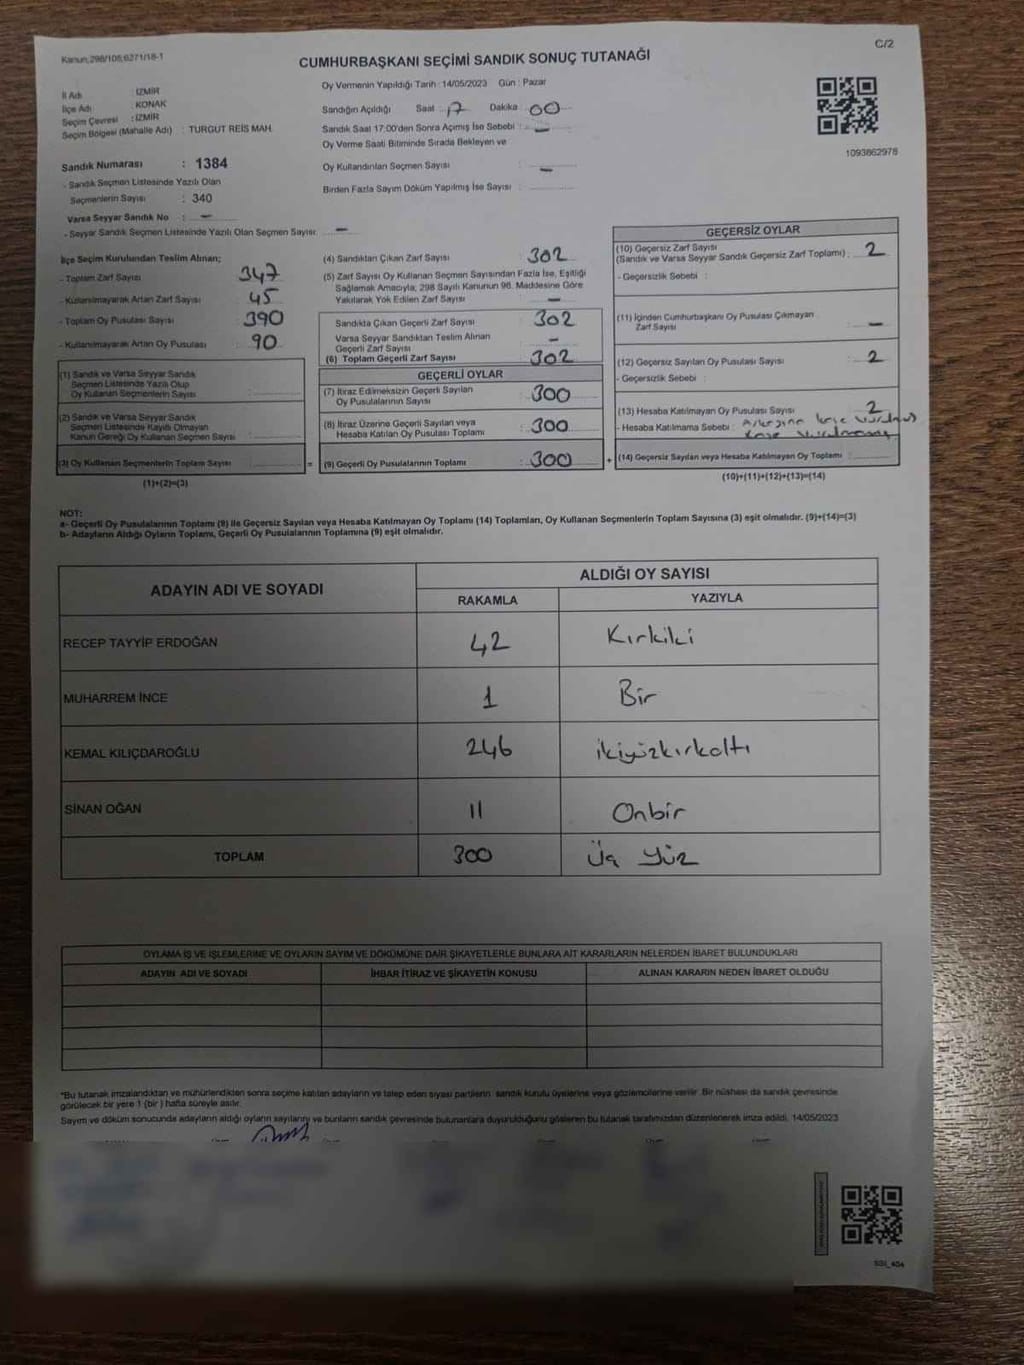 Kanun;298/105;6271/18-1
C/2
CUMHURBAŞKANI SEÇİMİ SANDIK SONUÇ TUTANAĞI
Oy Vermenin Yapıldığı Tarih : 14/05/2023 Gün : Pazar
İl Adı : İZMİR
İlçe Adı : KONAK
Seçim Çevresi : İZMİR
Seçim Bölgesi (Mahalle Adı) : TURGUT REİS MAH.
Sandığın Açıldığı Saat : 17 Dakika 00
Sandık Saat 17:00'den Sonra Açımış İse Sebebi : –
Oy Verme Saati Bitiminde Sırada Bekleyen ve
Oy Kullandırılan Seçmen Sayısı : –
Birden Fazla Sayım Döküm Yapılmış İse Sayısı :
1093862978
Sandık Numarası : 1384
- Sandık Seçmen Listesinde Yazılı Olan
Seçmenlerin Sayısı : 340
Varsa Seyyar Sandık No : –
- Seyyar Sandık Seçmen Listesinde Yazılı Olan Seçmen Sayısı: –
İlçe Seçim Kurulundan Teslim Alınan;
- Toplam Zarf Sayısı : 347
- Kullanılmayarak Artan Zarf Sayısı : 45
- Toplam Oy Pusulası Sayısı : 390
- Kullanılmayarak Artan Oy Pusulası : 90
(1) Sandık ve Varsa Seyyar Sandık
Seçmen Listesinde Yazılı Olup
Oy Kullanan Seçmenlerin Sayısı :
(2) Sandık ve Varsa Seyyar Sandık
Seçmen Listesinde Kayıtlı Olmayan
Kanun Gereği Oy Kullanan Seçmen Sayısı :
(3) Oy Kullanan Seçmenlerin Toplam Sayısı :
(1)+(2)=(3)
(4) Sandıktan Çıkan Zarf Sayısı : 302
(5) Zarf Sayısı Oy Kullanan Seçmen Sayısından Fazla İse, Eşitliği
Sağlamak Amacıyla, 298 Sayılı Kanunun 98. Maddesine Göre
Yakılarak Yok Edilen Zarf Sayısı : –
Sandıkta Çıkan Geçerli Zarf Sayısı : 302
Varsa Seyyar Sandıktan Teslim Alınan
Geçerli Zarf Sayısı : –
(6) Toplam Geçerli Zarf Sayısı : 302
GEÇERLİ OYLAR
(7) İtiraz Edilmeksizin Geçerli Sayılan
Oy Pusulalarının Sayısı : 300
(8) İtiraz Üzerine Geçerli Sayılan veya
Hesaba Katılan Oy Pusulası Toplamı : 300
= (9) Geçerli Oy Pusulalarının Toplamı : 300 +
GEÇERSİZ OYLAR
(10) Geçersiz Zarf Sayısı
(Sandık ve Varsa Seyyar Sandık Geçersiz Zarf Toplamı) : 2
- Geçersizlik Sebebi :
(11) İçinden Cumhurbaşkanı Oy Pusulası Çıkmayan
Zarf Sayısı : –
(12) Geçersiz Sayılan Oy Pusulası Sayısı : 2
- Geçersizlik Sebebi :
(13) Hesaba Katılmayan Oy Pusulası Sayısı : 2
- Hesaba Katılmama Sebebi :
(14) Geçersiz Sayılan veya Hesaba Katılmayan Oy Toplamı :
(10)+(11)+(12)+(13)=(14)
NOT:
a- Geçerli Oy Pusulalarının Toplamı (9) ile Geçersiz Sayılan veya Hesaba Katılmayan Oy Toplamı (14) Toplamları, Oy Kullanan Seçmenlerin Toplam Sayısına (3) eşit olmalıdır. (9)+(14)=(3)
b- Adayların Aldığı Oyların Toplamı, Geçerli Oy Pusulalarının Toplamına (9) eşit olmalıdır.
ADAYIN ADI VE SOYADI ALDIĞI OY SAYISI
RAKAMLA YAZIYLA
RECEP TAYYİP ERDOĞAN 42 Kırkiki
MUHARREM İNCE 1 Bir
KEMAL KILIÇDAROĞLU 246 ikiyüzkırkaltı
SİNAN OĞAN 11 Onbir
TOPLAM 300 Üç Yüz
OYLAMA İŞ VE İŞLEMLERİNE VE OYLARIN SAYIM VE DÖKÜMÜNE DAİR ŞİKAYETLERLE BUNLARA AİT KARARLARIN NELERDEN İBARET BULUNDUKLARI
ADAYIN ADI VE SOYADI İHBAR İTİRAZ VE ŞİKAYETİN KONUSU ALINAN KARARIN NEDEN İBARET OLDUĞU
*Bu tutanak imzalandıktan ve mühürlendikten sonra seçime katılan adayların ve talep eden siyasi partilerin sandık kurulu üyelerine veya gözlemcilerine verilir. Bir nüshası da sandık çevresinde
görülecek bir yere 1 (bir ) hafta süreyle asılır.
Sayım ve döküm sonucunda adayların aldığı oyların sayılarını ve bunların sandık çevresinde bulunanlara duyurulduğunu gösteren bu tutanak tarafımızdan düzenlenerek imza edildi. 14/05/2023